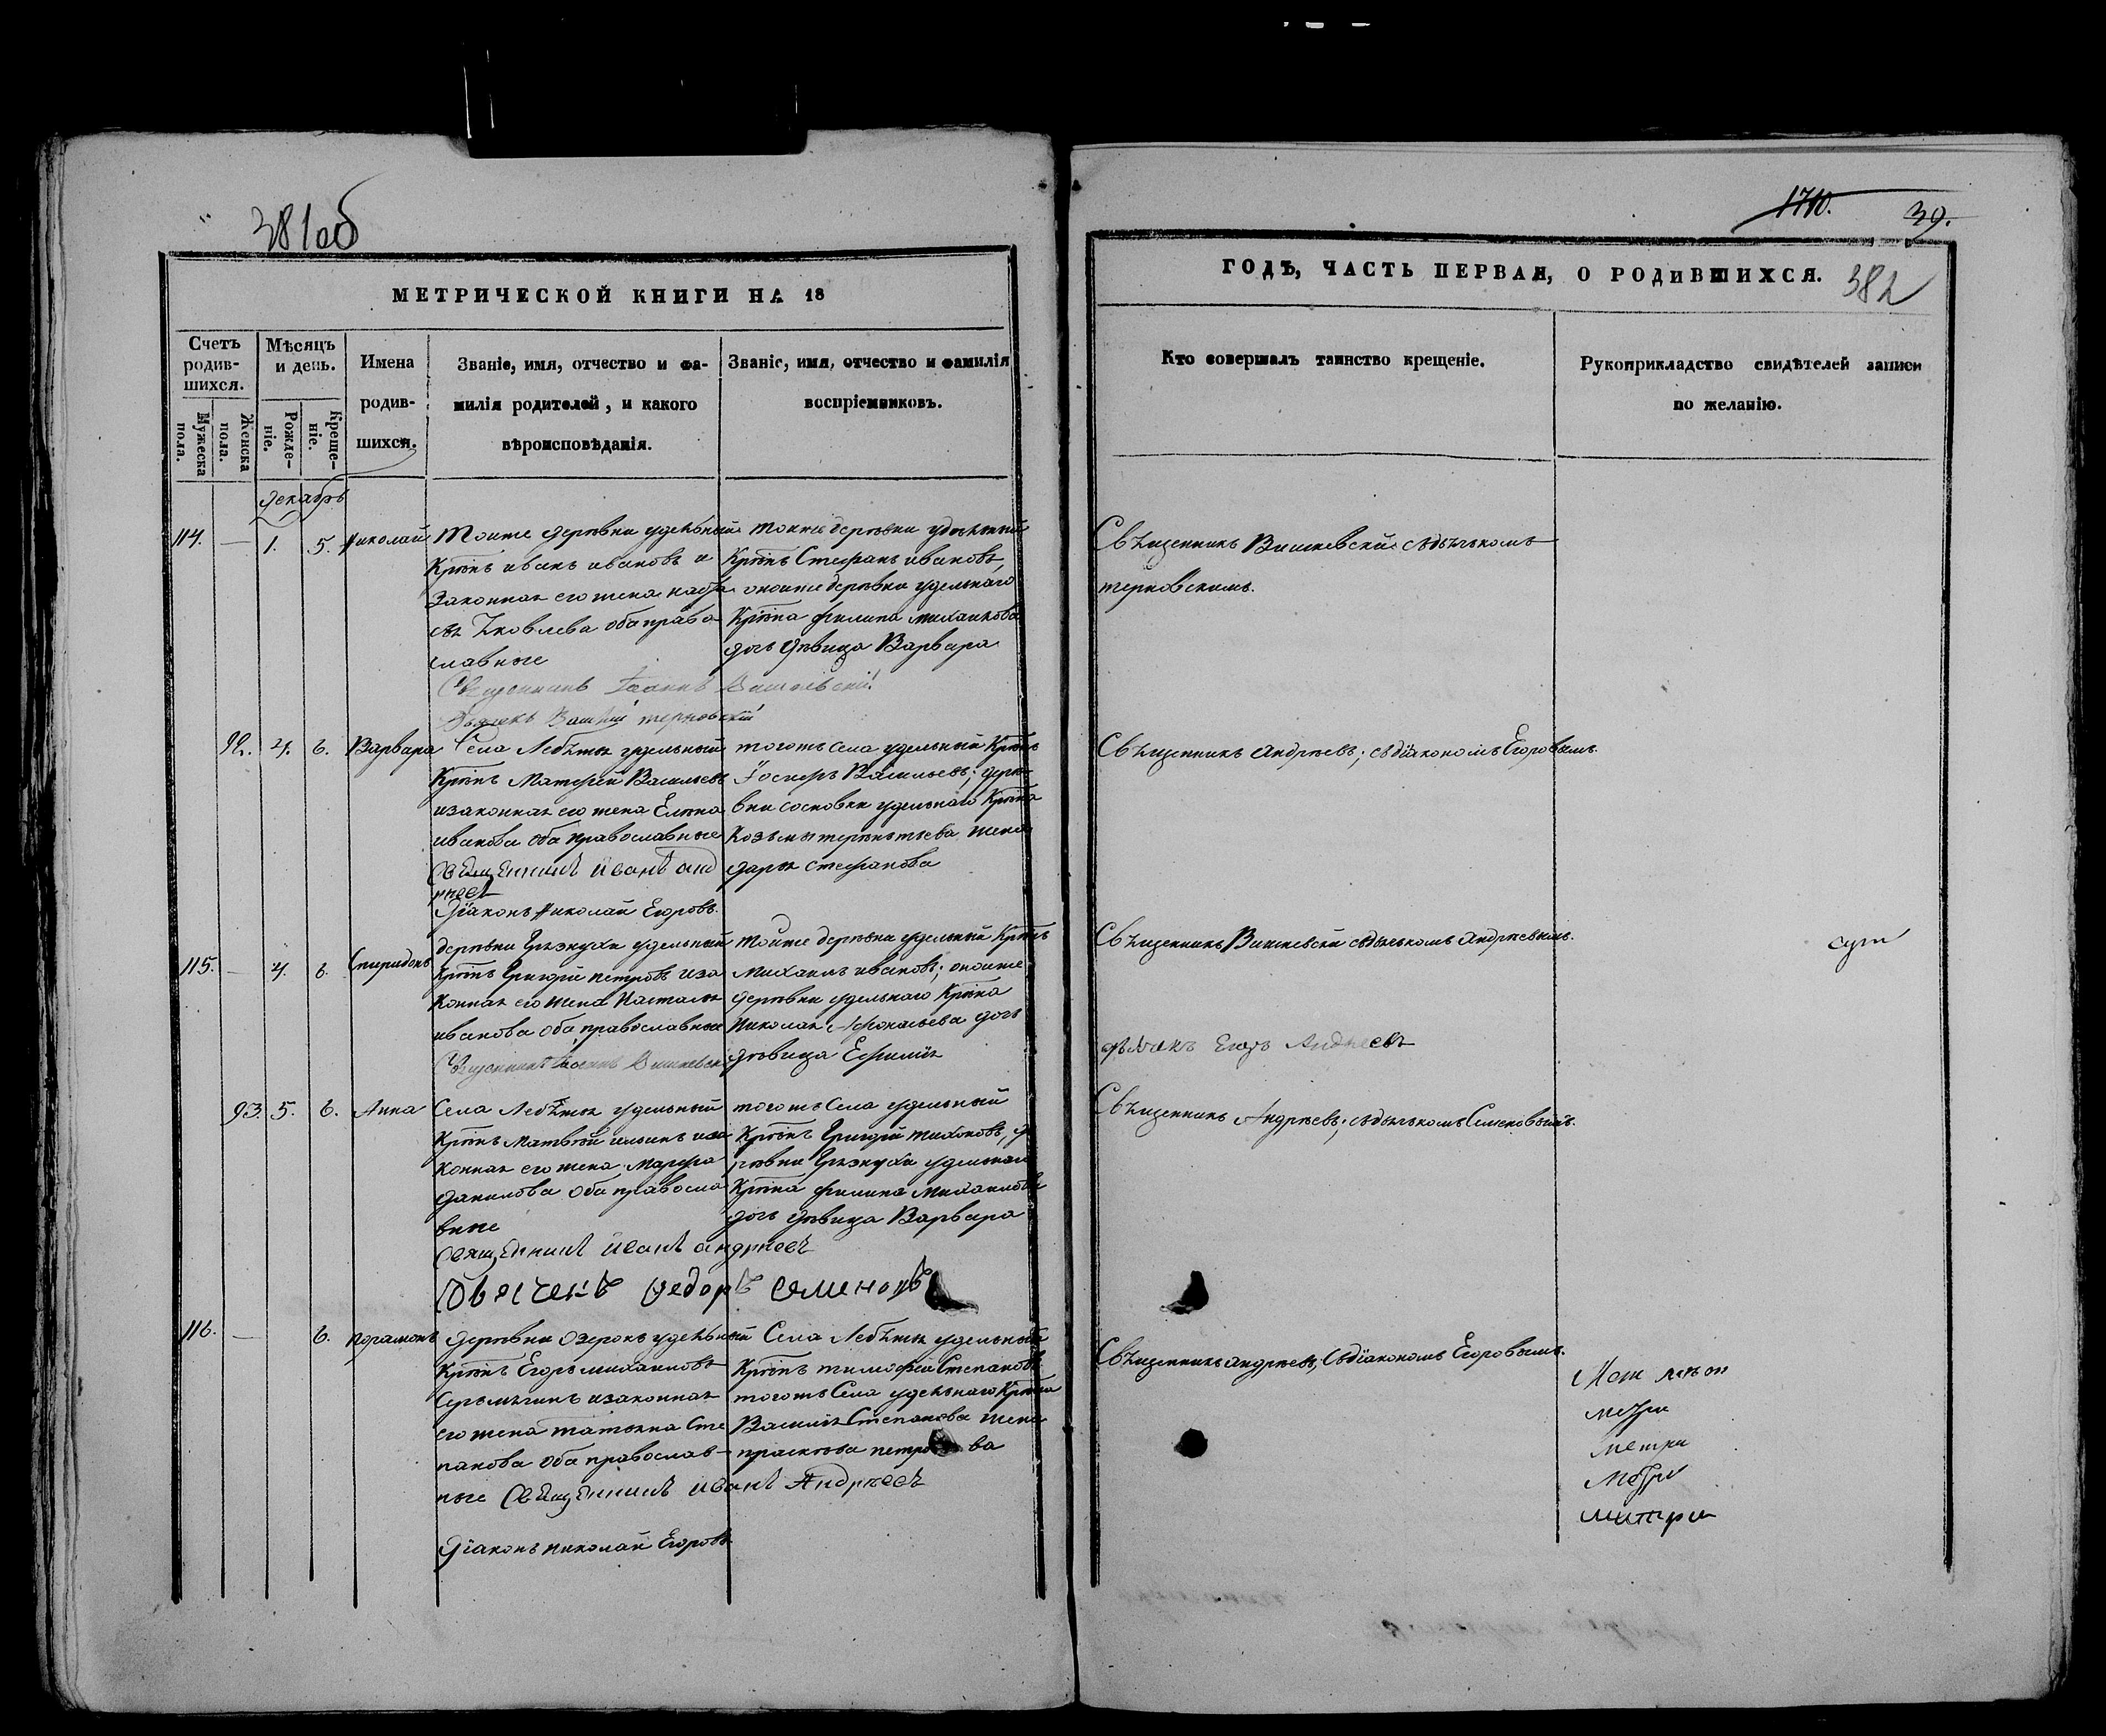 381об
МЕТРИЧЕСКОЙ КНИГИ НА 18
Счетъ родив-шихся.
Мужеска пола.
Женска пола.
Мѣсяцъ и день.
Рожде-ніе.
Креще-ніе.
Имена родив-шихся.
Званіе, имя, отчество и фа-милія родителей, и какого вѣроисповѣданія.
Званіе, имя, отчество и фамилія воспріемниковъ.
декабрь
114. — 1. 5. Николай
Тоиже деревни удѣльный
Крѣнъ иванъ ивановъ и
Законная его жена наста
сья Яковлева оба право
славные
Священникъ Іоаннъ Вишневскій
Дьячекъ терновскій
Тоиже деревни удѣльный
Крѣнъ Стефанъ ивановъ,
оноиже деревни удельнаго
Крѣна филипа михаилова
дочь дѣвица Варвара
92. 4. 6. Варвара
Села Лебѣжья удельный
Крѣнъ Матфей Васильевъ
изаконная его жена Елѣна
иванова оба православные
Священникъ иванъ анд
рѣевъ
Діаконъ Николай Егоровъ.
тогожъ Села удельный Крѣнъ
Васильевъ; дере-
вни сосновки удельнаго Крѣна
Козьмы терѣнтьева жена
дарья стефанова
115. — 4. 6. Спиридонъ
деревни Грязнухи удельный
Крѣнъ Григорій петровъ иза
конная его жена Наталья
иванова оба православные
Священникъ Іоаннъ Вишневскій
Тоиже деревни удельный Крѣнъ
Михаилъ ивановъ; оноиже
деревни удельнаго Крѣна
Николая Афонасьева дочь
дѣвица Ефимія
93. 5. 6. Анна
Села Лебѣжья удельный
Крѣнъ Матвѣй ильинъ иза
конная его жена Марфа
данилова оба правосла
вные
Священникъ иванъ андрѣевъ
Дьячекъ Федоръ Семеновъ
тогожъ Села удельный
Крѣнъ Григорій тихоновъ, де
ревни Грязнухи удельнаго
Крѣна филипа Михаилова
дочь дѣвица Варвара
116. — 6. порамонъ
деревни Озерокъ удельный
Крѣнъ Егоръ михаиловъ
изаконная
его жена татьяна Сте
панова оба православ-
ные Священникъ иванъ Андрѣевъ
Діаконъ николай Егоровъ
Села Лебѣжья удельный
Крѣнъ тимофей Степановъ
тогожъ Села удельнаго Крѣна
Василія Степанова жена
прасковья петрова
1710.
39.
ГОДЪ, ЧАСТЬ ПЕРВАЯ, О РОДИВШИХСЯ.
382
Кто совершалъ таинство крещеніе.
Рукоприкладство свидѣтелей записи по желанію.
Священникъ Вишневскій сдьячкомъ
терновскимъ.
Священникъ андрѣевъ; сдіакономъ Егоровымъ.
Священникъ Вишневскій сдьячкомъ андрѣевымъ.
дьячекъ Егоръ Андреевъ
Священникъ Андрѣевъ; сдьячкомъ Семеновымъ.
Священникъ андрѣевъ, сдіакономъ Егоровымъ.
метри
метри
метри